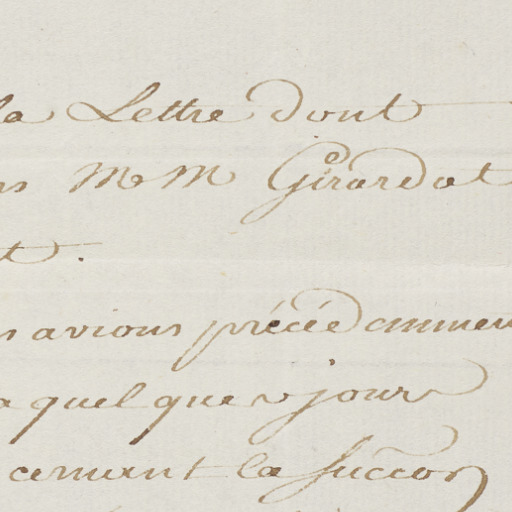 la Lettre dont
ns MM Girardot
t.
s avions précédemmen
a quelques jours
cernant la Succon